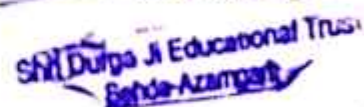 Shri Durga Ji Educational Trust
Sehda-Azamgarh